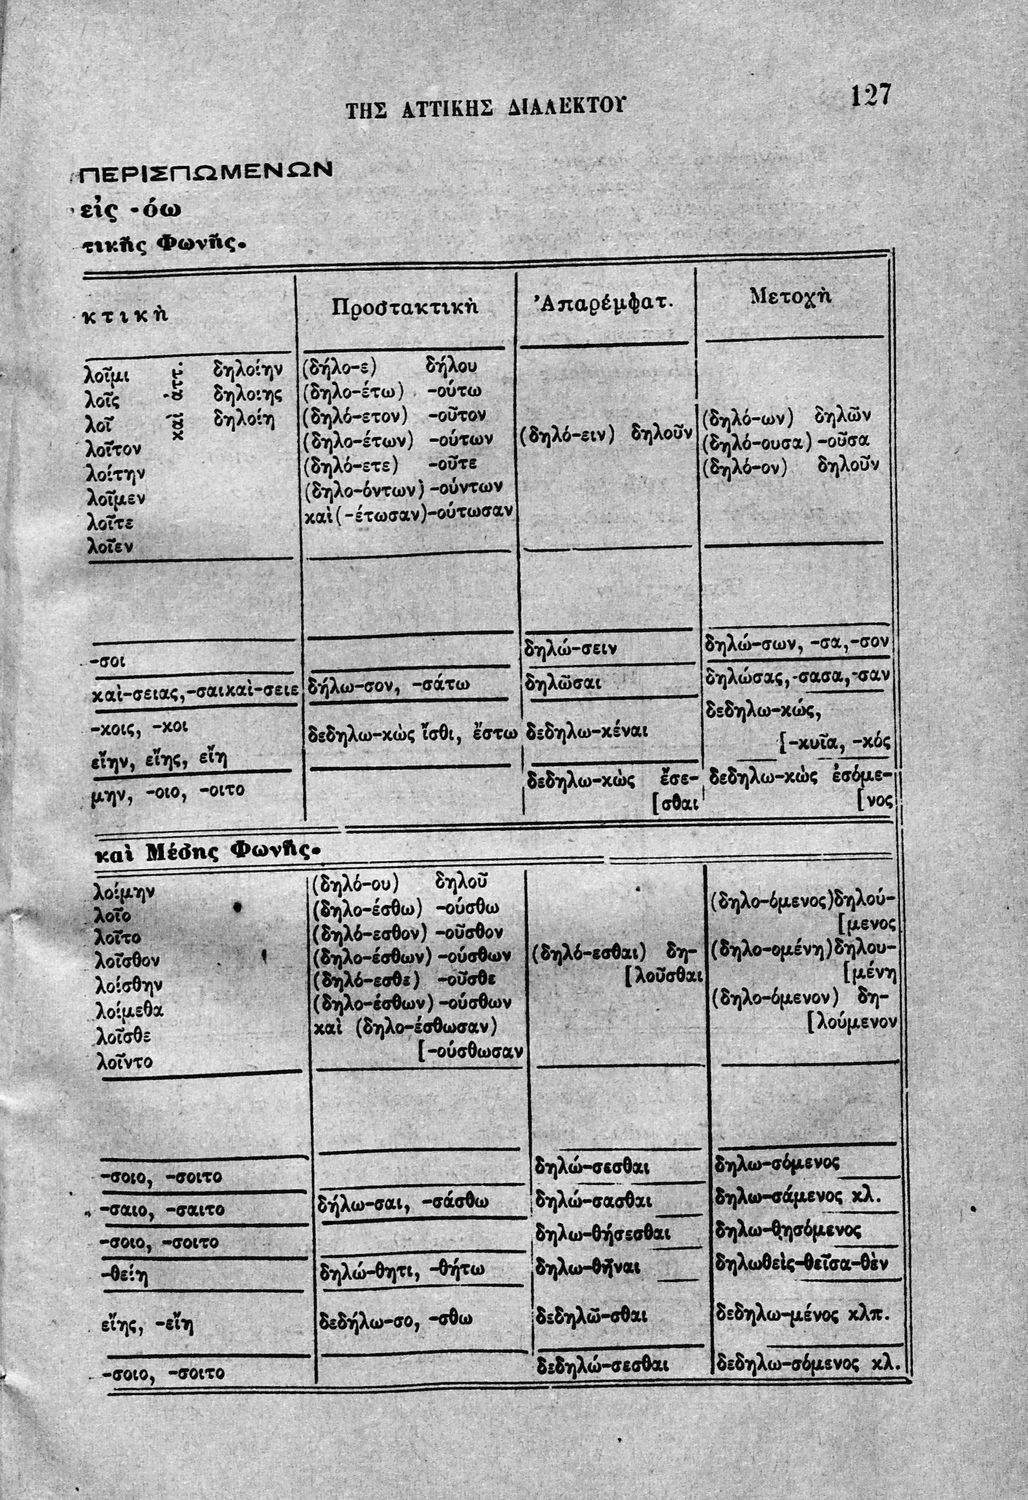 ΤΗΣ ΑΤΤΙΚΗΣ ΔΙΑΛΕΚΤΟΥ 127
ΠΕΡΙΣΠΩΜΕΝΩΝ
εἰς -όω
τικῆς Φωνῆς.
κτικὴ Προστακτικὴ Ἀπαρέμφατ. Μετοχὴ
λοῖμι δηλοίην
λοῖς δηλοίης
λοῖ δηλοίη
λοῖτον
λοίτην
λοῖμεν
λοῖτε
λοῖεν
καὶ ἀττ.
(δήλο-ε) δήλου
(δηλο-έτω) -ούτω
(δηλό-ετον) -οῦτον
(δηλο-έτων) -ούτων
(δηλό-ετε) -οῦτε
(δηλο-όντων) -ούντων
καὶ (-έτωσαν)-ούτωσαν
(δηλό-ειν) δηλοῦν
(δηλό-ων) δηλῶν
(δηλό-ουσα) -οῦσα
(δηλό-ον) δηλοῦν
-σοι δηλώ-σειν δηλώ-σων, -σα,-σον
καὶ-σειας,-σαικαὶ-σειε δήλω-σον, -σάτω δηλῶσαι δηλώσας,-σασα,-σαν
-κοις, -κοι
εἴην, εἴης, εἴη
δεδηλω-κὼς ἴσθι, ἔστω δεδηλω-κέναι
δεδηλω-κώς,
[-κυῖα, -κός
μην, -οιο, -οιτο
δεδηλω-κὼς ἔσε-
[σθαι
δεδηλω-κὼς ἐσόμε-
[νος
καὶ Μέσης Φωνῆς.
λοίμην
λοῖο
λοῖτο
λοῖσθον
λοίσθην
λοίμεθα
λοῖσθε
λοῖντο
(δηλό-ου) δηλοῦ
(δηλο-έσθω) -ούσθω
(δηλό-εσθον) -οῦσθον
(δηλο-έσθων) -ούσθων
(δηλό-εσθε) -οῦσθε
(δηλο-έσθων) -ούσθων
καὶ (δηλο-έσθωσαν)
[-ούσθωσαν
(δηλό-εσθαι) δη-
[λοῦσθαι
(δηλο-όμενος)δηλού-
[μενος
(δηλο-ομένη)δηλου-
[μένη
(δηλο-όμενον) δη-
[λούμενον
-σοιο, -σοιτο δηλώ-σεσθαι δηλω-σόμενος
-σαιο, -σαιτο δήλω-σαι, -σάσθω δηλώ-σασθαι δηλω-σάμενος κλ.
-σοιο, -σοιτο δηλω-θήσεσθαι δηλω-θησόμενος
-θείη δηλώ-θητι, -θήτω δηλω-θῆναι δηλωθεὶς-θεῖσα-θὲν
εἴης, -εἴη δεδήλω-σο, -σθω δεδηλῶ-σθαι δεδηλω-μένος κλπ.
-σοιο, -σοιτο δεδηλώ-σεσθαι δεδηλω-σόμενος κλ.